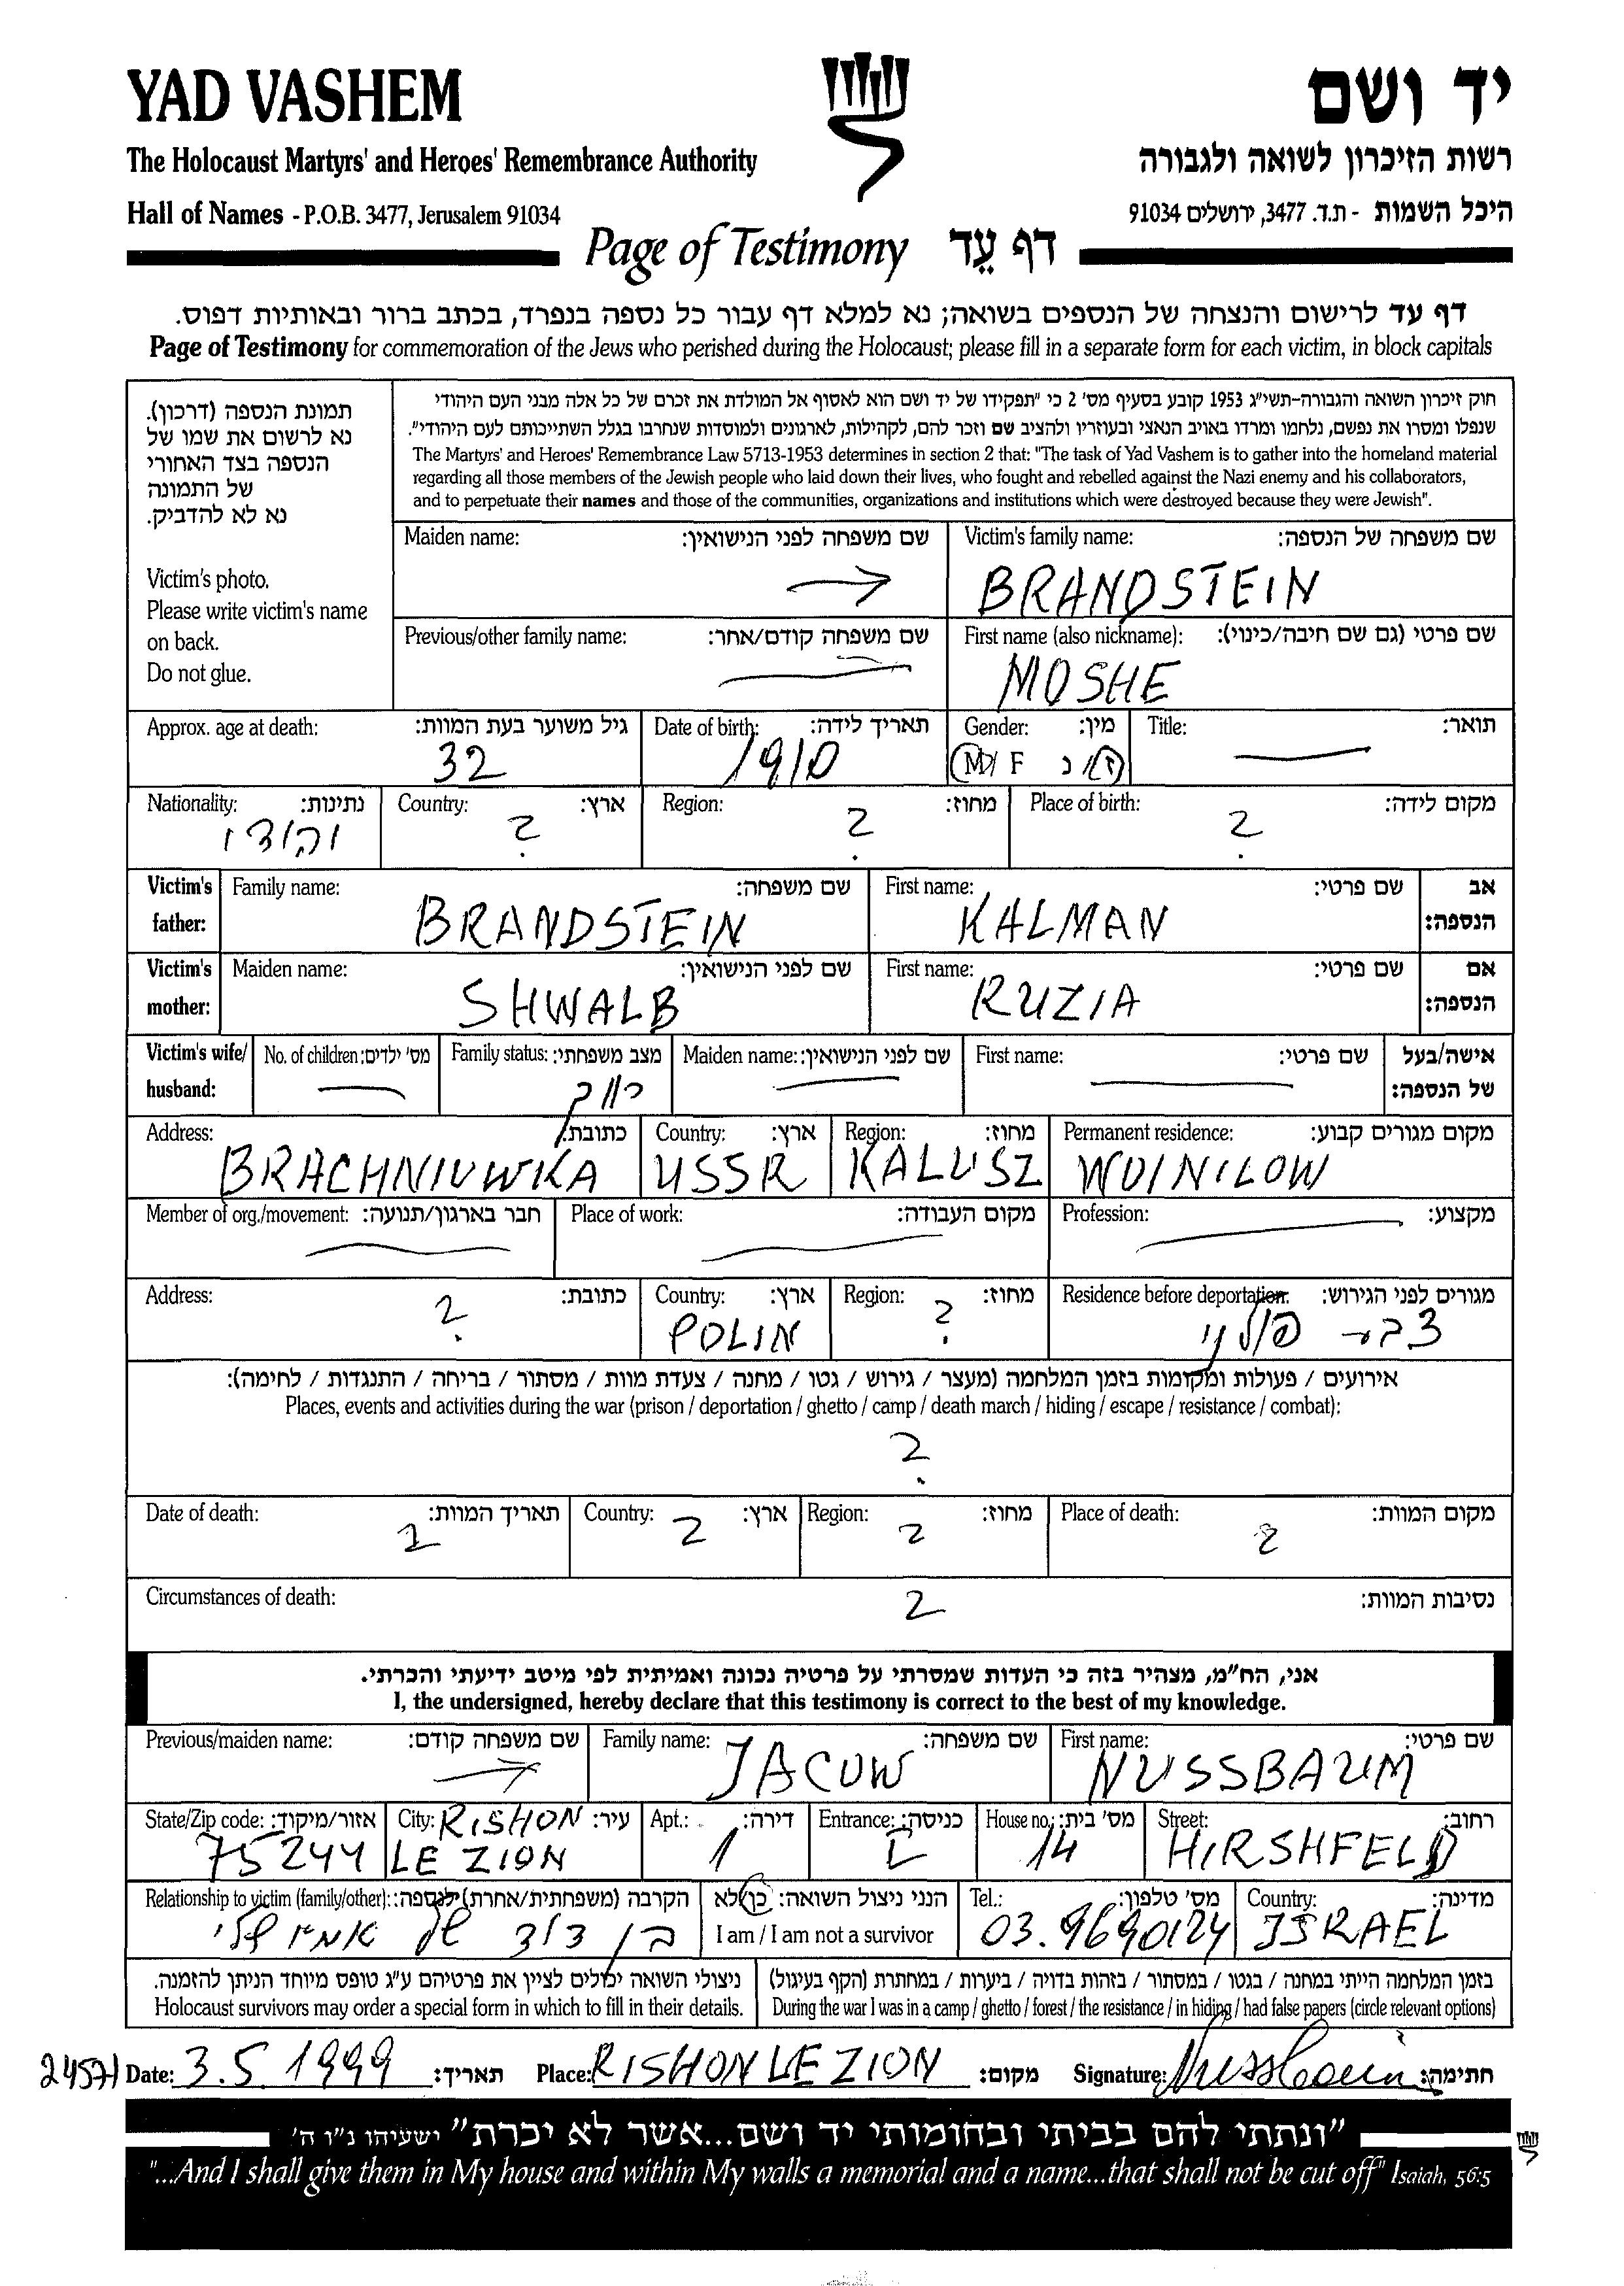 YAD VASHEM יד ושם
The Holocaust Martyrs' and Heroes' Remembrance Authority רשות הזיכרון לשואה ולגבורה
Hall of Names - P.O.B. 3477, Jerusalem 91034 היכל השמות - ת.ד. 3477, ירושלים 91034
Page of Testimony דף עֵד
דף עד לרישום והנצחה של הנספים בשואה; נא למלא דף עבור כל נספה בנפרד, בכתב ברור ובאותיות דפוס.
Page of Testimony for commemoration of the Jews who perished during the Holocaust; please fill in a separate form for each victim, in block capitals
תמונת הנספה (דרכון).
נא לרשום את שמו של
הנספה בצד האחורי
של התמונה
נא לא להדביק.
Victim's photo.
Please write victim's name
on back.
Do not glue.
חוק זיכרון השואה והגבורה-תשי"ג 1953 קובע בסעיף מס' 2 כי "תפקידו של יד ושם הוא לאסוף אל המולדת את זכרם של כל אלה מבני העם היהודי
שנפלו ומסרו את נפשם, נלחמו ומרדו באויב הנאצי ובעוזריו ולהציב שם וזכר להם, לקהילות, לארגונים ולמוסדות שנחרבו בגלל השתייכותם לעם היהודי".
The Martyrs' and Heroes' Remembrance Law 5713-1953 determines in section 2 that: "The task of Yad Vashem is to gather into the homeland material
regarding all those members of the Jewish people who laid down their lives, who fought and rebelled against the Nazi enemy and his collaborators,
and to perpetuate their names and those of the communities, organizations and institutions which were destroyed because they were Jewish".
Maiden name: שם משפחה לפני הנישואין: Victim's family name: שם משפחה של הנספה:
BRANDSTEIN
Previous/other family name: שם משפחה קודם/אחר: First name (also nickname): שם פרטי (גם שם חיבה/כינוי):
MOSHE
Approx. age at death: גיל משוער בעת המוות: Date of birth: תאריך לידה: Gender: מין: Title: תואר:
32 1910 M/F ז/נ
Nationality: נתינות: Country: ארץ: Region: מחוז: Place of birth: מקום לידה:
יהודי ? ? ?
Victim's father: Family name: שם משפחה: First name: שם פרטי: אב הנספה:
BRANDSTEIN KALMAN
Victim's mother: Maiden name: שם לפני הנישואין: First name: שם פרטי: אם הנספה:
SHWALB RUZIA
Victim's wife/husband: No. of children: מס' ילדים: Family status: מצב משפחתי: Maiden name: שם לפני הנישואין: First name: שם פרטי: אישה/בעל של הנספה:
רווק
Address: כתובת: Country: ארץ: Region: מחוז: Permanent residence: מקום מגורים קבוע:
BRACHNIUWKA USSR KALUSZ WOINILOW
Member of org./movement: חבר בארגון/תנועה: Place of work: מקום העבודה: Profession: מקצוע:
Address: כתובת: Country: ארץ: Region: מחוז: Residence before deportation: מגורים לפני הגירוש:
? POLIN ? פולני
אירועים / פעולות ומקומות בזמן המלחמה (מעצר / גירוש / גטו / מחנה / צעדת מוות / מסתור / בריחה / התנגדות / לחימה):
Places, events and activities during the war (prison / deportation / ghetto / camp / death march / hiding / escape / resistance / combat):
?
Date of death: תאריך המוות: Country: ארץ: Region: מחוז: Place of death: מקום המוות:
? ? ? ?
Circumstances of death: נסיבות המוות:
?
אני, הח"מ, מצהיר בזה כי העדות שמסרתי על פרטיה נכונה ואמיתית לפי מיטב ידיעתי והכרתי.
I, the undersigned, hereby declare that this testimony is correct to the best of my knowledge.
Previous/maiden name: שם משפחה קודם: Family name: שם משפחה: First name: שם פרטי:
JACUW NUSSBAUM
State/Zip code: אזור/מיקוד: City: עיר: Apt.: דירה: Entrance: כניסה: House no.: מס' בית: Street: רחוב:
75244 RISHON LE ZION 1 14 HIRSHFELD
Relationship to victim (family/other): הקרבה (משפחתית/אחרת) לנספה: הנני ניצול השואה: כן/לא Tel.: מס' טלפון: Country: מדינה:
בן דוד של אמא שלי I am / I am not a survivor 03.9690124 ISRAEL
ניצולי השואה יכולים לציין את פרטיהם ע"ג טופס מיוחד הניתן להזמנה. בזמן המלחמה הייתי במחנה / בגטו / במסתור / בזהות בדויה / ביערות / במחתרת (הקף בעיגול)
Holocaust survivors may order a special form in which to fill in their details. During the war I was in a camp / ghetto / forest / the resistance / in hiding / had false papers (circle relevant options)
24571 Date: 3.5.1999 תאריך: Place: RISHON LE ZION מקום: Signature: Nussbaum חתימה:
"ונתתי להם בביתי ובחומותי יד ושם...אשר לא יכרת" ישעיהו נ"ו ה'
"...And I shall give them in My house and within My walls a memorial and a name...that shall not be cut off" Isaiah, 56:5